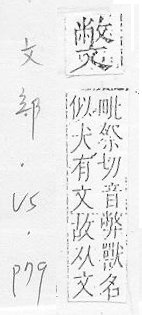 毗祭切音弊獸名
似犬有文故从文
文部.V5.P79